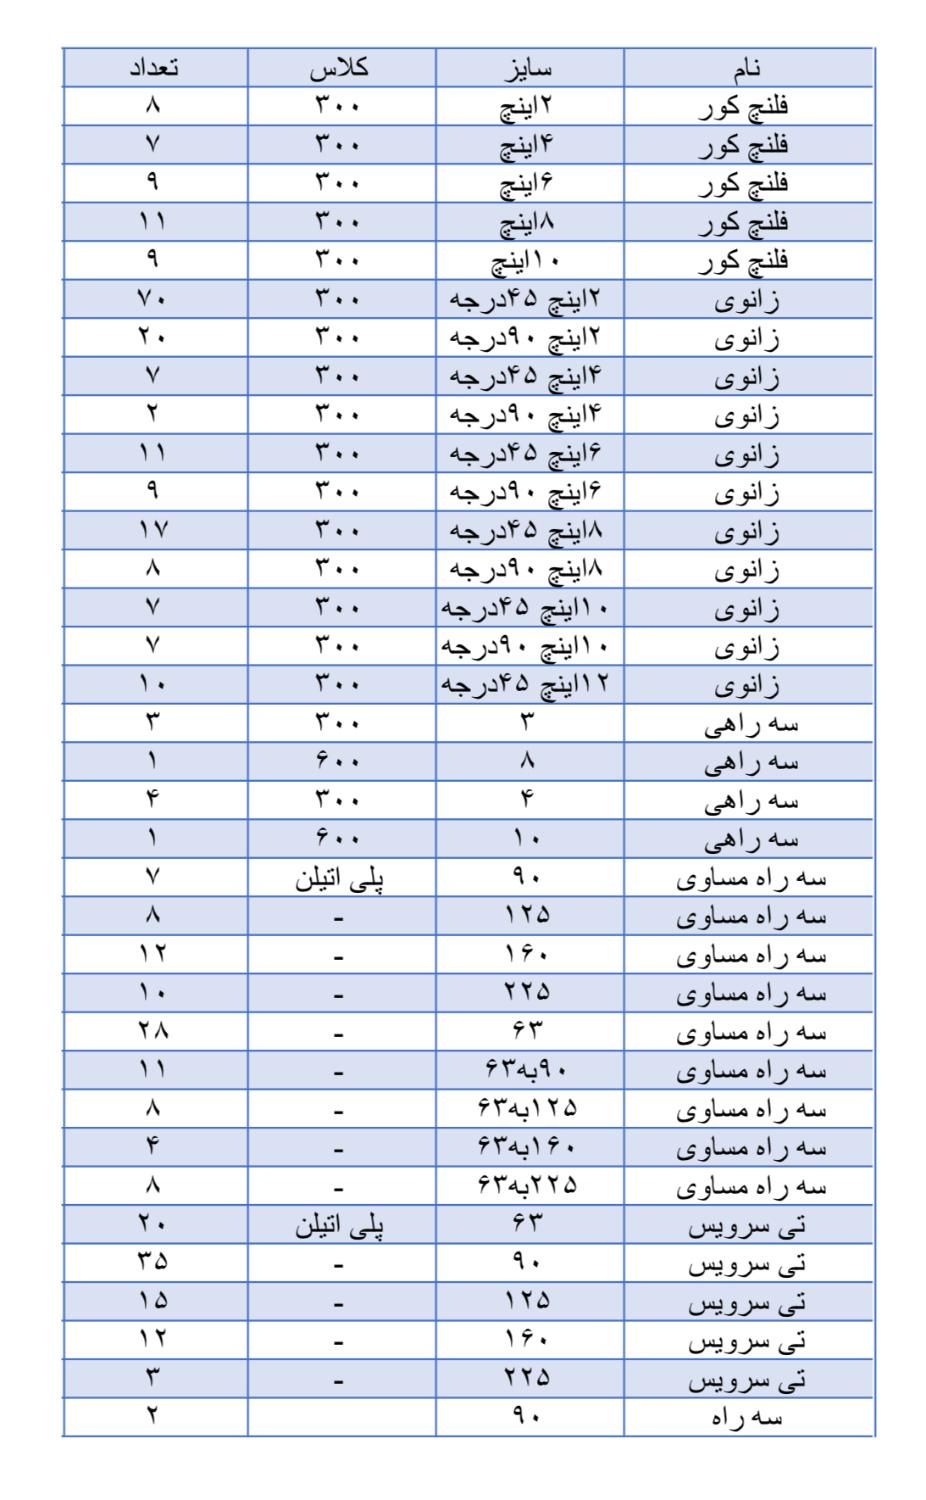 نام سایز کلاس تعداد
فلنچ کور ۲اینچ ۳۰۰ ۸
فلنچ کور ۴اینچ ۳۰۰ ۷
فلنچ کور ۶اینچ ۳۰۰ ۹
فلنچ کور ۸اینچ ۳۰۰ ۱۱
فلنچ کور ۱۰اینچ ۳۰۰ ۹
زانوی ۲اینچ ۴۵درجه ۳۰۰ ۷۰
زانوی ۲اینچ ۹۰درجه ۳۰۰ ۲۰
زانوی ۴اینچ ۴۵درجه ۳۰۰ ۷
زانوی ۴اینچ ۹۰درجه ۳۰۰ ۲
زانوی ۶اینچ ۴۵درجه ۳۰۰ ۱۱
زانوی ۶اینچ ۹۰درجه ۳۰۰ ۹
زانوی ۸اینچ ۴۵درجه ۳۰۰ ۱۷
زانوی ۸اینچ ۹۰درجه ۳۰۰ ۸
زانوی ۱۰اینچ ۴۵درجه ۳۰۰ ۷
زانوی ۱۰اینچ ۹۰درجه ۳۰۰ ۷
زانوی ۱۲اینچ ۴۵درجه ۳۰۰ ۱۰
سه راهی ۳ ۳۰۰ ۳
سه راهی ۸ ۶۰۰ ۱
سه راهی ۴ ۳۰۰ ۴
سه راهی ۱۰ ۶۰۰ ۱
سه راه مساوی ۹۰ پلی اتیلن ۷
سه راه مساوی ۱۲۵ - ۸
سه راه مساوی ۱۶۰ - ۱۲
سه راه مساوی ۲۲۵ - ۱۰
سه راه مساوی ۶۳ - ۲۸
سه راه مساوی ۹۰به۶۳ - ۱۱
سه راه مساوی ۱۲۵به۶۳ - ۸
سه راه مساوی ۱۶۰به۶۳ - ۴
سه راه مساوی ۲۲۵به۶۳ - ۸
تی سرویس ۶۳ پلی اتیلن ۲۰
تی سرویس ۹۰ - ۳۵
تی سرویس ۱۲۵ - ۱۵
تی سرویس ۱۶۰ - ۱۲
تی سرویس ۲۲۵ - ۳
سه راه ۹۰ ۲